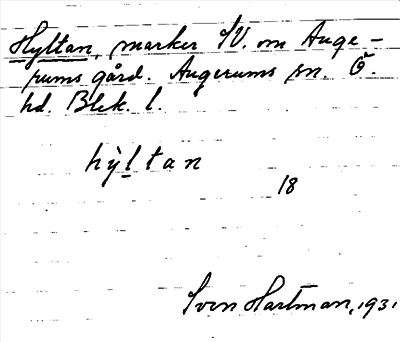 Hyltan, marker SV. om Auge-
rums gård. Augerums sn. Ö.
hd. Blek. l.
hỳltan
18
Sven Hartman, 1931